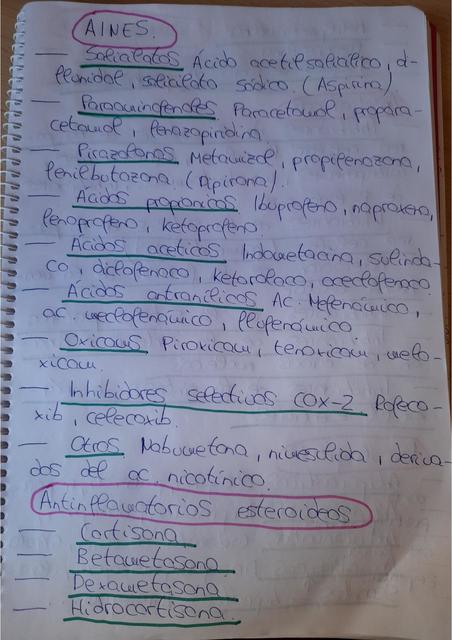 AINES.
— Salicilatos Ácido acetilsalicílico, di-
flunidol, salicilato sódico. (Aspirina)
— Paraaminofenoles Paracetamol, propara-
cetamol, fenazopiridina
— Pirazolonas Metamizol, propifenazona,
fenilbutazona (Dipirona).
— Ácidos propónicos Ibuprofeno, naproxeno,
fenoprofeno, ketoprofeno.
— Ácidos aceticos Indometacina, sulinda-
co, diclofenaco, ketorolaco, aceclofenaco
— Ácidos antranílicos Ac. Mefenámico,
ac. meclofenámico, flufenámico
— Oxicams Piroxicam, tenoxicam, melo-
xicam.
— Inhibidores selectivos COX-2 Rofeco-
xib, celecoxib.
— Otros Nabumetona, nimesulida, deriva-
dos del ac. nicotínico.
Antinflamatorios esteroideos
— Cortisona
— Betametasona
— Dexametasona
— Hidrocortisona.